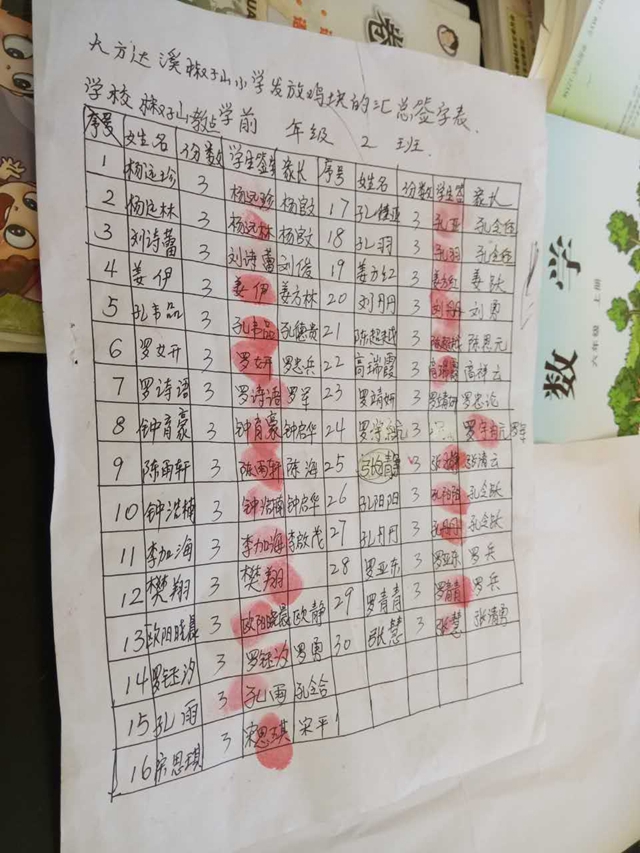 大方达溪椒子山小学发放鸡块的汇总签字表.
学校 椒子山教占 学前 年级 2 班.
序号 姓名 份数 学生签 家长 序号 姓名 份数 学生签 家长
1 杨远珍 3 杨远珍 杨官文 17 3 孔亚
2 杨远林 3 杨远林 杨官文 18 孔羽 3 孔羽
3 刘诗蕾 3 刘诗蕾 刘俊 19 姜方红 3 姜方红 姜跃
4 姜伊 3 姜伊 姜方林 20 刘丹丹 3 刘丹丹 刘勇
5 孔韦品 3 孔韦品 孔德贵 21 陈起越 3 陈起越 陈恩元
6 罗女开 3 罗女开 罗忠兵 22 高瑞霞 3 高瑞霞 高祥云
7 罗诗语 3 罗诗语 罗军 23 罗靖妍 3 罗靖妍 罗忠论
8 钟育豪 3 钟育豪 钟启华 24 3 罗军
9 陈雨轩 3 陈雨轩 陈海 25 张静 3 张静 张清云
10 钟浩楠 3 钟浩楠 钟启华 26 孔阳阳 3 孔阳阳 孔令跃
11 李加海 3 李加海 李啟茂 27 孔丹丹 3 孔丹丹 孔令跃
12 樊翔 3 樊翔 28 罗亚东 3 罗亚东 罗兵
13 欧阳晓晨 3 欧阳晓晨 欧静 29 罗青青 3 罗青青 罗兵
14 罗钰汐 3 罗钰汐 罗勇 30 张慧 3 张慧 张清勇
15 孔雨 3 孔雨 孔令合
16 宋思琪 3 宋思琪 宋平
数学
六年级 上册
卷